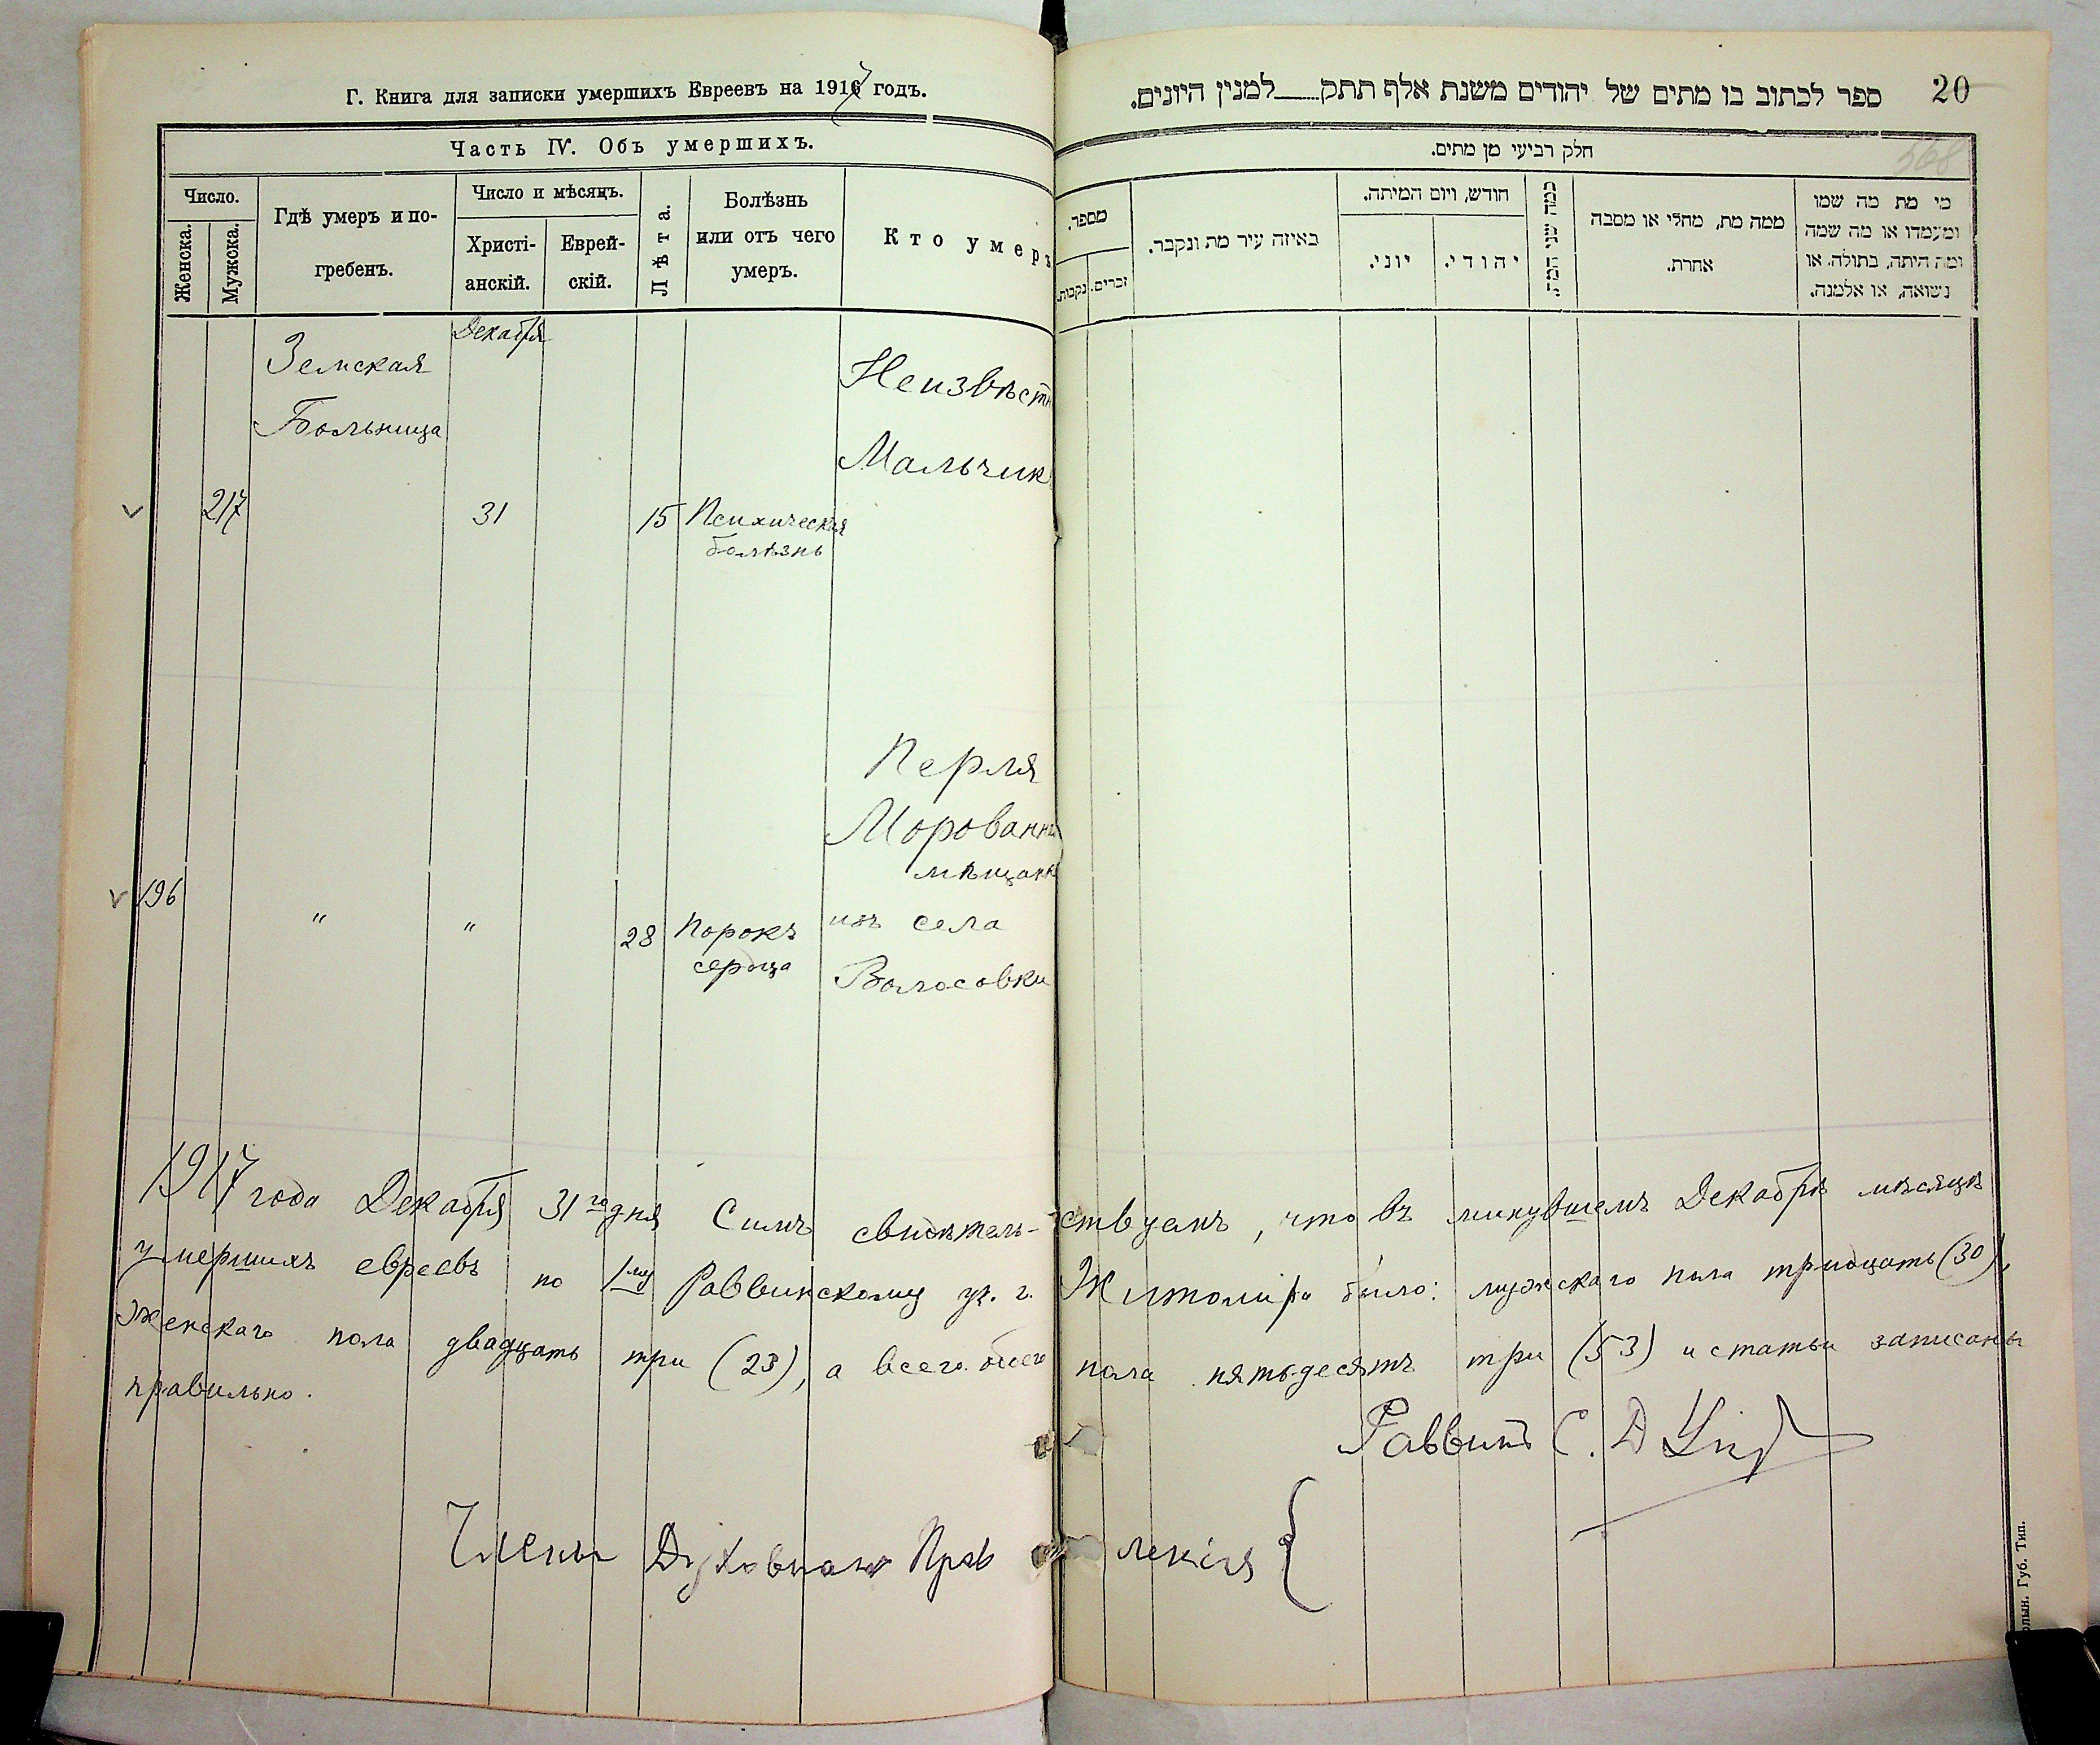 Г. Книга для записки умершихъ Евреевъ на 1917 годъ.
Часть IV. Объ умершихъ.
Число.
Женска.
Мужска.
Гдѣ умеръ и по-
гребенъ.
Число и мѣсяцъ.
Христі-
анскій.
Еврей-
скій.
Лѣта.
Болѣзнь
или отъ чего
умеръ.
Кто умеръ
Декабря
Земская
Больница
Неизвѣстн
Мальчик
217
31
15
Психическая
болѣзнь
Перля
Морованн
мѣщанк
196
"
"
28
Порокъ
сердца
изъ села
Волосовки
ספר לכתוב בו מתים של יהודים משנת אלף תתק___למנין היונים.
20
568
חלק רביעי מן מתים.
מספר.
נקבות.
זכרים.
באיזה עיר מת ונקבר.
חודש, ויום המיתה.
יוני.
יהודי.
כמה שני המת.
ממה מת, מחלי או מסבה
אחרת.
מי מת מה שמו
ומעמדו או מה שמה
ומה היתה, בתולה, או
נשואה, או אלמנה.
1917 года Декабря 31го дня Симъ свидѣтель-ствуемъ, что въ минувшемъ Декабрѣ мѣсяцѣ
умершихъ евреевъ по 1му Раввинскому уч. г. Житомира было: мужскаго пола тридцать (30),
женскаго пола двадцать три (23), а всего обоего пола пятьдесятъ три (53) и статьи записаны
правильно.
Раввинъ С. Д
Члены Духовнаго Прав ленія {
олын. Губ. Тип.